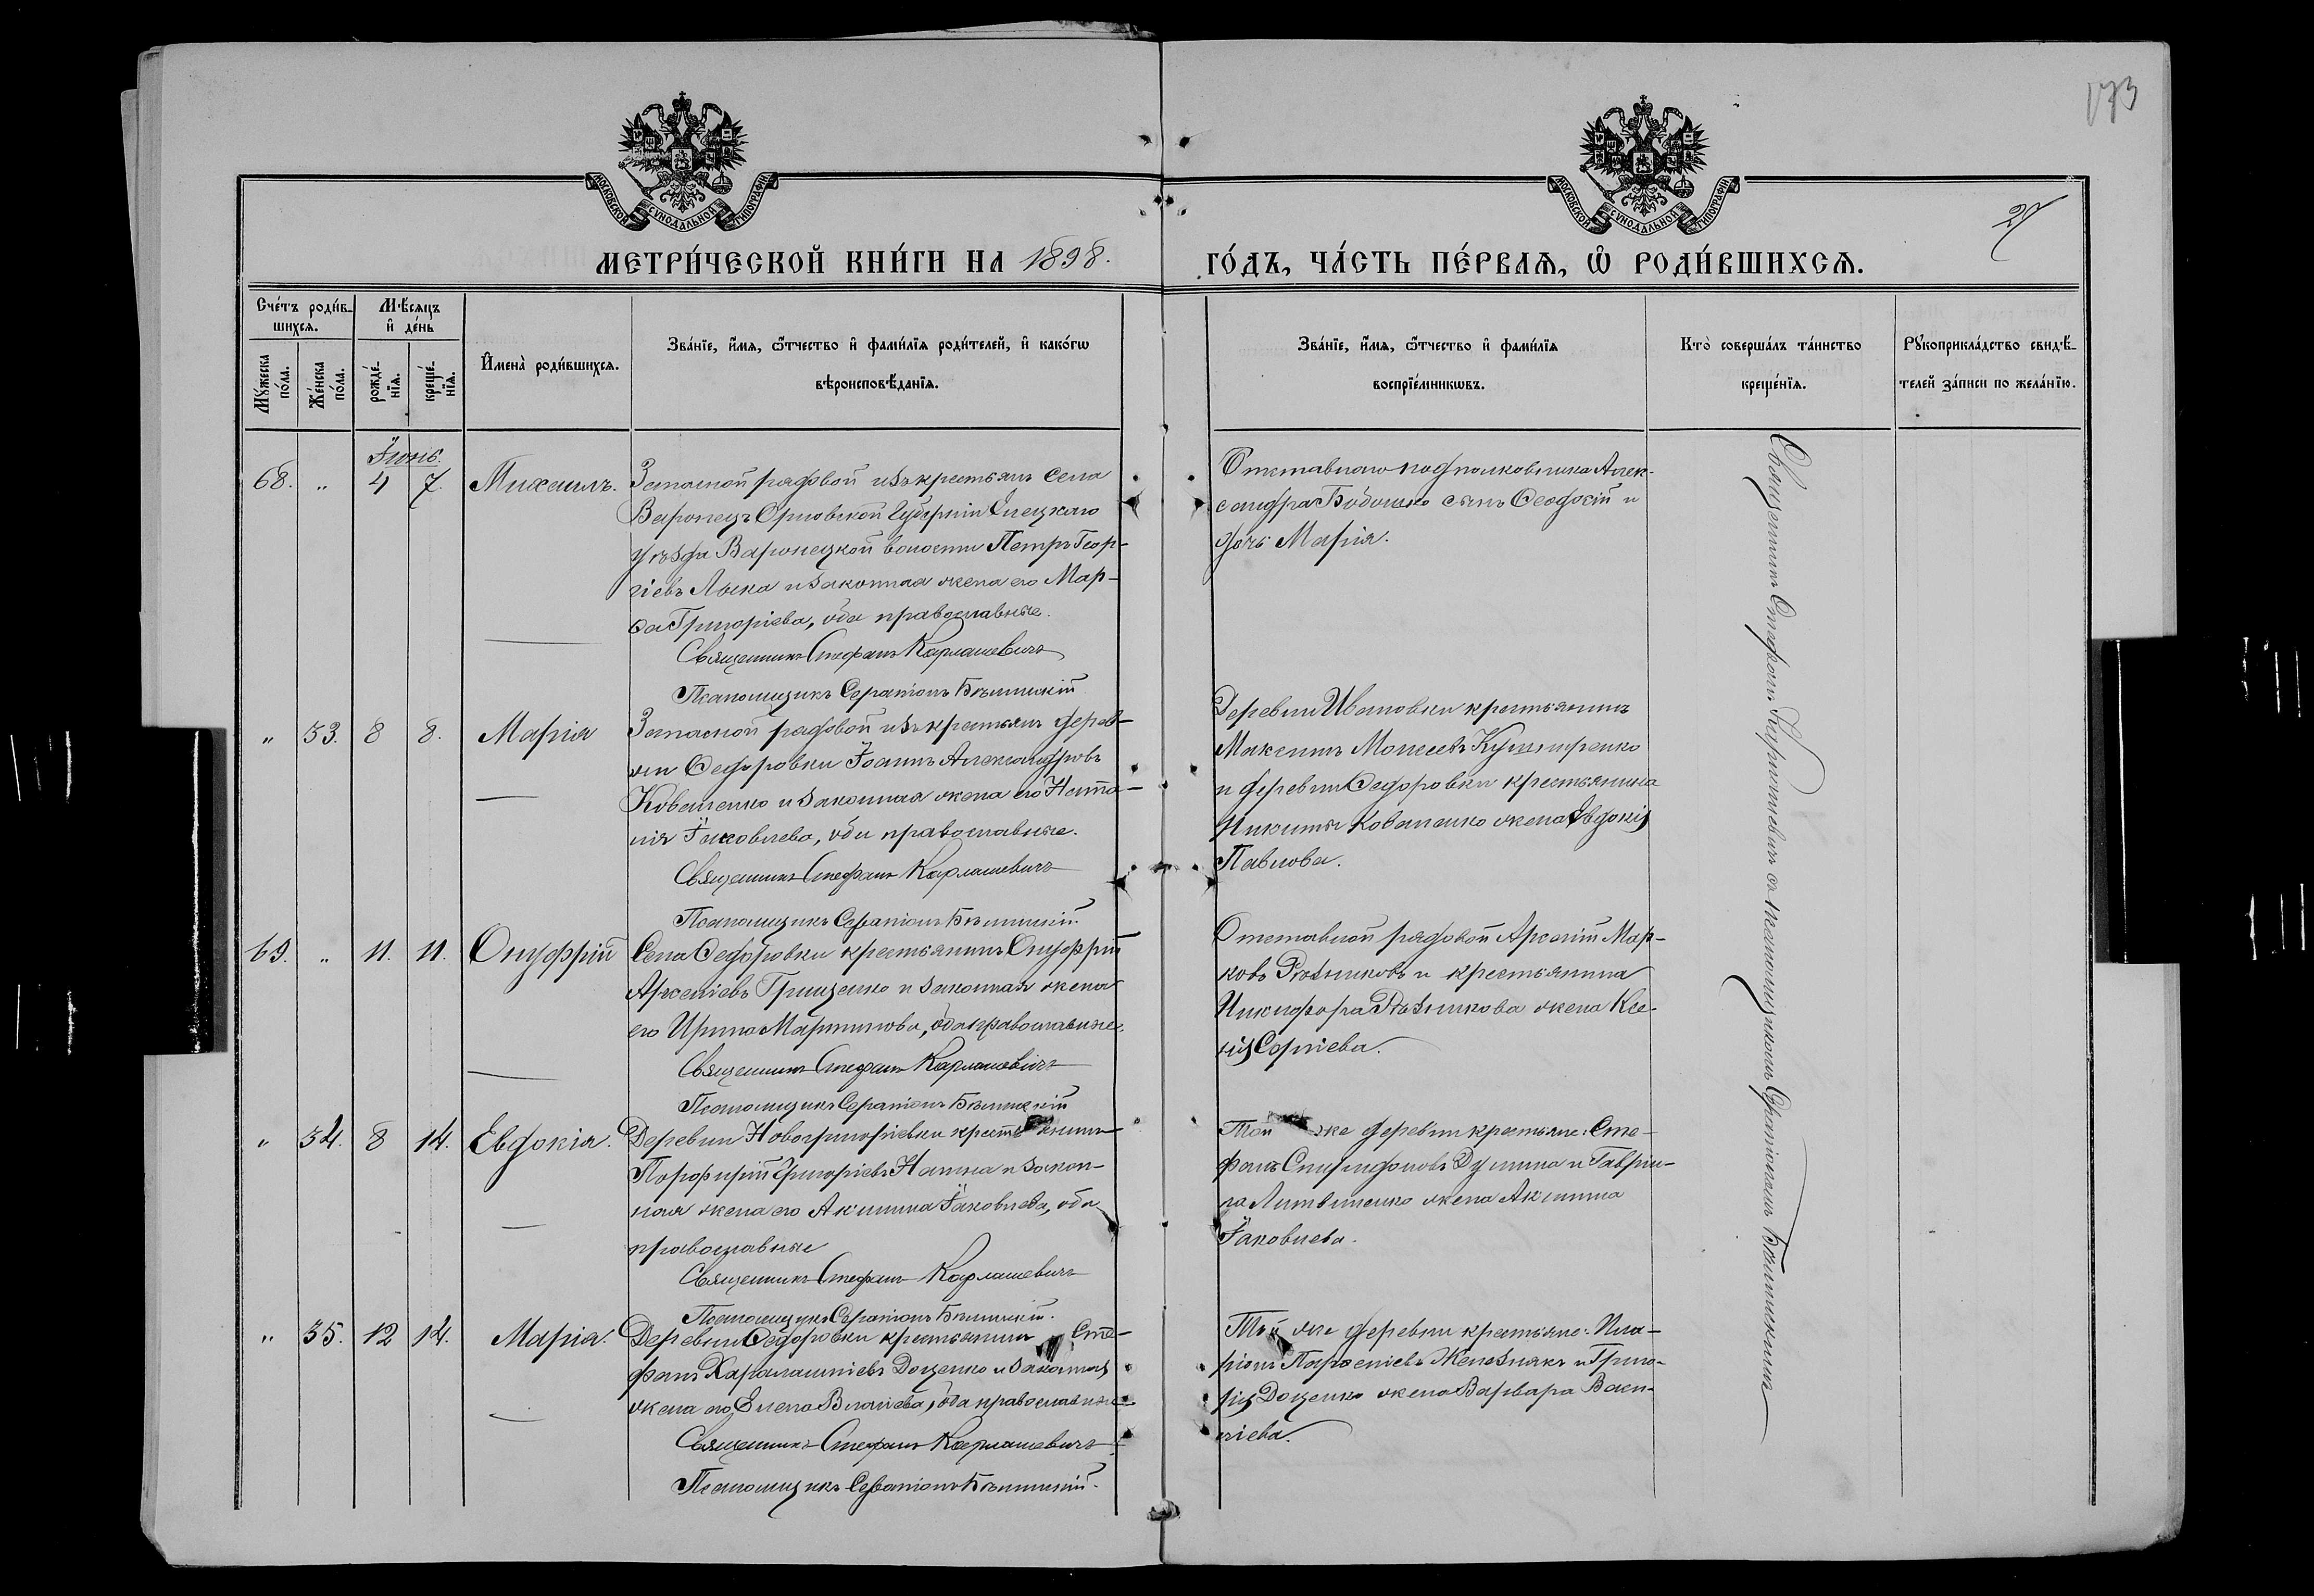 173
27
МОСКОВСКОЙ СѴНОДАЛЬНОЙ ТИПОГРАФІИ
МОСКОВСКОЙ СѴНОДАЛЬНОЙ ТИПОГРАФІИ
МЕТРИ́ЧЕСКОЙ КНИ́ГИ НА 1898.
ГО́ДЪ, ЧА́СТЬ ПЕ́РВАѦ, Ѡ҆ РОДИ́ВШИХСѦ.
Сче́тъ роди́в-
шихсѧ.
Мꙋ́жеска по́ла.
Же́нска по́ла.
Мѣ́сѧцъ
и҆ де́нь
рожде́-
нїѧ.
креще́-
нїѧ.
И҆мена̀ роди́вшихсѧ.
Зва́нїе, и҆́мѧ, ѻ҆́тчество и҆ фами́лїѧ роди́телей, и҆ како́гѡ
вѣроисповѣ́данїѧ.
Зва́нїе, и҆́мѧ, ѻ҆́тчество и҆ фами́лїѧ
воспрїе́мникѡвъ.
Кто̀ соверша́лъ та́инство
креще́нїѧ.
Рꙋкоприкла́дство свидѣ́-
телей за́писи по жела́нїю.
Іюнь.
68. „ 4 7. Михаилъ.
Запасной рядовой изъ крестьянъ села
Воронецъ Орловской Губерніи Елецкаго
уѣзда Воронецкой волости Петръ Геор-
гіевъ и законная жена его Мар-
Григоріева, оба православные.
Священникъ Стефанъ Карлашевичъ
Псаломщикъ Серапіонъ
Отставного подполковника Алек-
сандра сынъ Ѳеодосій и
дочь Марія.
„ 53. 8 8. Марія
Запасной рядовой изъ крестьянъ дерев-
ни Ѳедоровки Іоаннъ Александровъ
Коваленко и законная жена его Ната-
лія Іаковлева, оба православные.
Священникъ Стефанъ Карлашевичъ
Псаломщикъ Серапіонъ
Деревни Ивановки крестьянинъ
Максимъ Моисеевъ
и деревни Ѳедоровки крестьянина
Никиты Коваленко жена Евдокія
Павлова.
69. „ 11. 11. Онуфрій
Села Ѳедоровки крестьянинъ Онуфрій
Арсеніевъ Грищенко и законная жена
его Ирина Мартинова, оба православные.
Священникъ Стефанъ Карлашевичъ
Псаломщикъ Серапіонъ
Отставной рядовой Арсеній Мар-
ковъ Рѣзниковъ и крестьянина
Никифора Рѣзникова жена Ксе-
нія Сергіева.
„ 54. 8 14. Евдокія.
Деревни Новогригоріевки крестьянинъ
Порфирій Григоріевъ и закон-
ная жена его Акилина Іаковлева, оба
православные
Священникъ Стефанъ Карлашевичъ
Псаломщикъ Серапіонъ
Той же деревни крестьяне: Сте-
фанъ Спиридоновъ и Гаврии-
ла Литвиненко жена Акилина
Іаковлева.
„ 55. 12 14. Марія.
Деревни Ѳедоровки крестьянинъ Сте-
фанъ Харалампіевъ Доценко и законная
жена его Елена Власіева, оба православные
Священникъ Стефанъ Карлашевичъ
Псаломщикъ Серапіонъ
Той же деревни крестьяне: Ила-
ріонъ Парѳеніевъ Желѣзнякъ и Григо-
рія Доценко жена Варвара Васи-
ліева.
Священникъ Стефанъ Карлашевичъ съ псаломщикомъ Серапіономъ